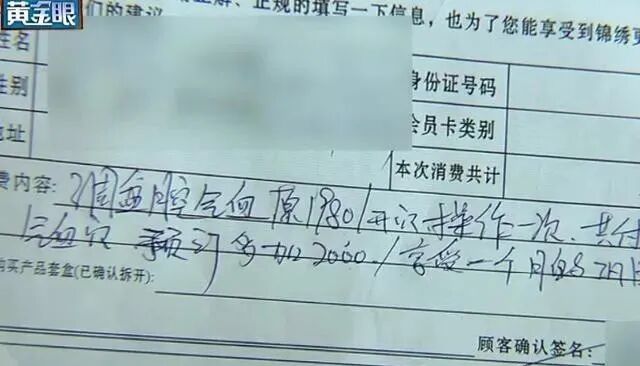 黄金眼
们的建议
、正规的填写一下信息，也为了您能享受到锦绣更
姓名
性别
身份证号码
会员卡类别
地址
本次消费共计
费内容：调盆腔气血原1980/ 操作一次.共付
气血 预订多加2000./享受一个月
购买产品套盒(已确认拆开)：
顾客确认签名：